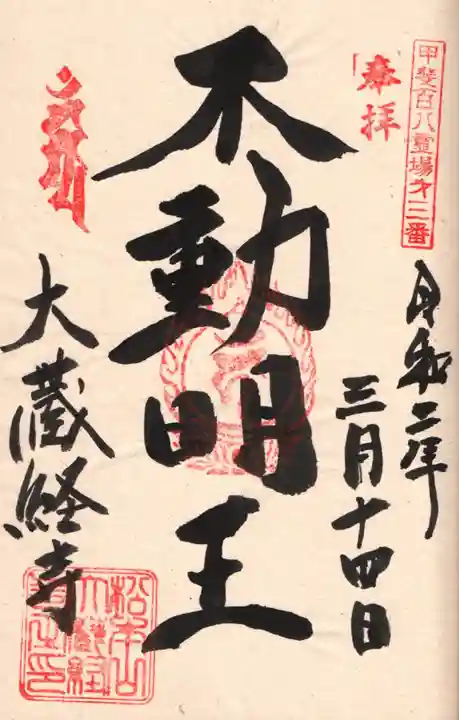 甲斐百八霊場第三番
奉拝
令和二年
三月十四日
不動明王
大蔵経寺
松本山
大蔵経
寺之印